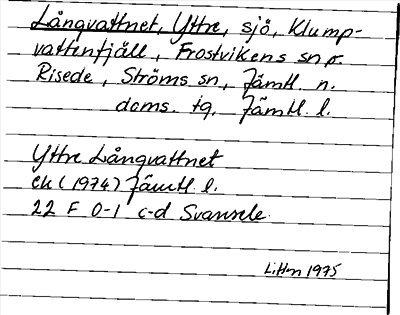 Långvattnet, Yttre, sjö, Klump-
vattenfjäll, Frostvikens sn o.
Risede, Ströms sn, Jämtl. n.
doms. tg, Jämtl. l.
Yttre Långvattnet
ek (1974) Jämtl. l.
22 F 0-1 c-d Svansele
1975